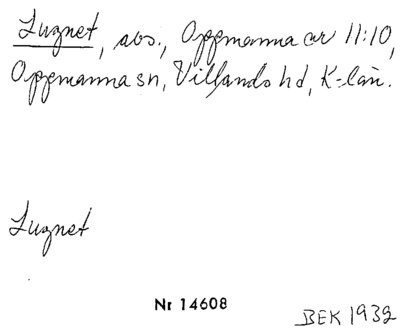 Lugnet, avs., Oppmanna cr 11:10,
Oppmanna sn, Villands hd, K-län.
Lugnet
Nr 14608
BEK 1932